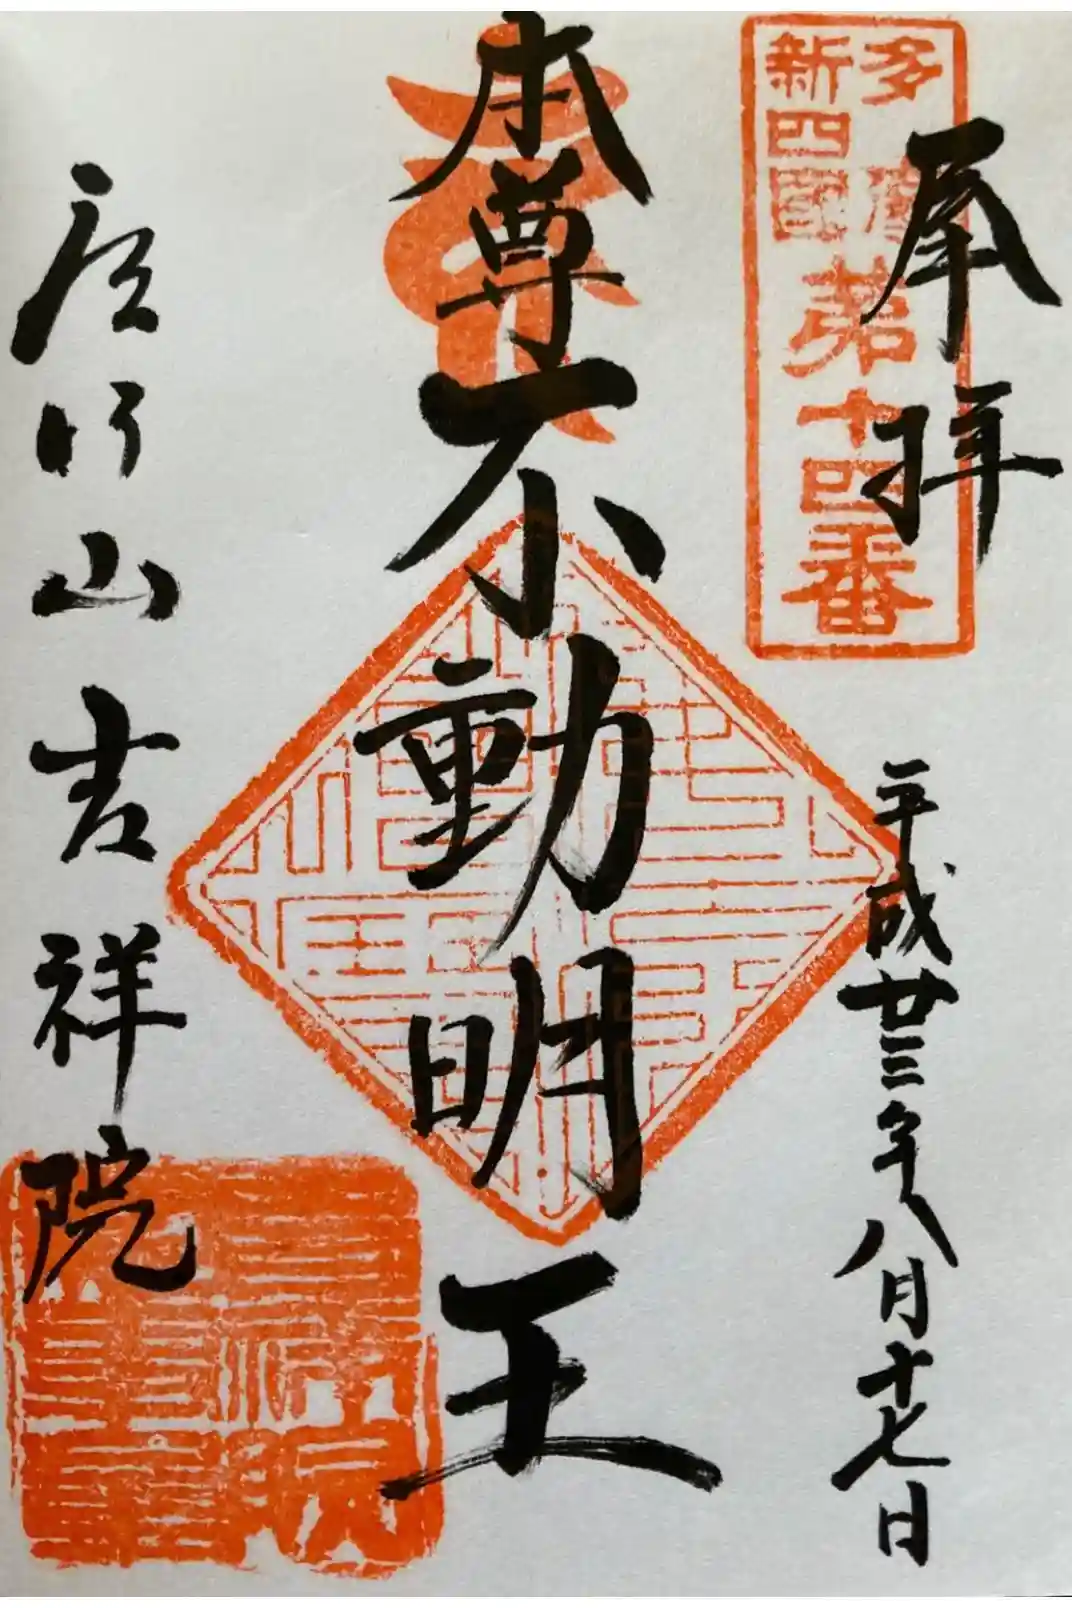 奉拝
多摩
新四國
第十四番
平成廿三年八月十七日
本尊不動明王
山吉祥院